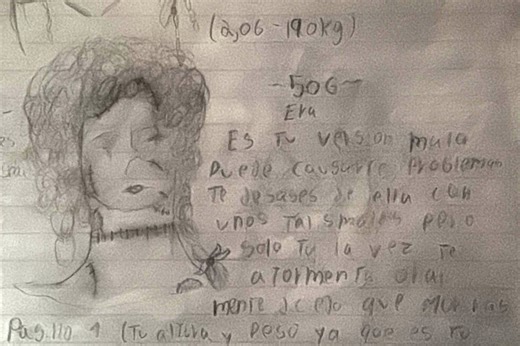 (2,06-190kg)
~506~
Eva
Es Tu version mala
Puede causarte Problemas
Te desases de ella con
unos Talismales pero
solo Tu la vez Te
atormenta
mente que
Pasillo 1 (Tu altura y peso ya que es tu